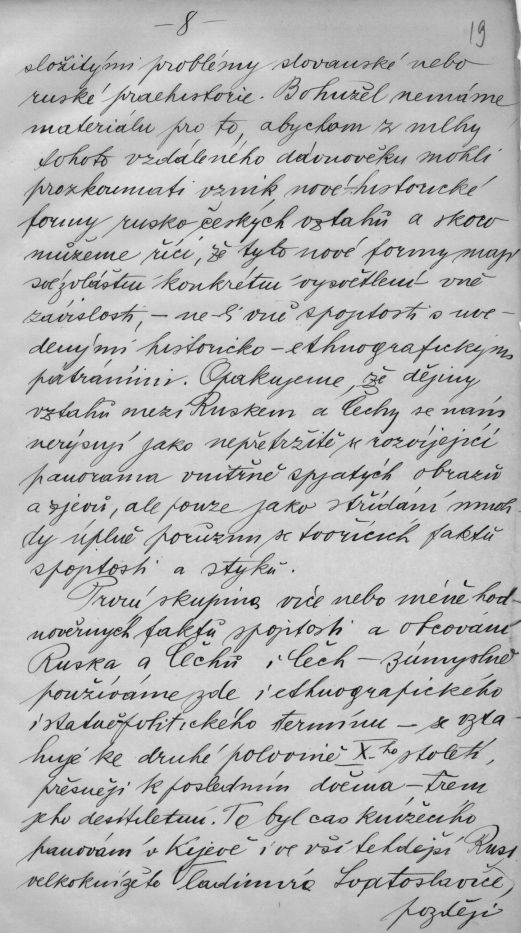 — 8 —
19
složitými problémy slovanské nebo
ruské praehistorie. Bohužel nemáme
materiálu pro to, abychom z mlhy
tohoto vzdáleného dávnověku mohli
prozkoumati vznik nové historické
formy rusko českých vztahů a skoro
můžeme říci, že tyto nové formy mají
konkrétní vysvětlení vně
závislosti, — ne-li vně spojitosti s uve-
denými historicko-ethnografickými
pátráními. Opakujeme, že dějiny
vztahů mezi Ruskem a Čechy se nám
nerýsují jako nepřetržitě se rozvíjející
panorama vnitřně spjatých obrazů
a zjevů, ale pouze jako střídání mnoh-
dy úplně porůznu se tvořících faktů
spojitosti a styků.
První skupina více nebo méně hod-
nověrných faktů spojitosti a obcování
Ruska a Čechů i Čech — zúmyslně
používáme zde i ethnografického
i statněpolitického termínu — se vzta-
huje ke druhé polovině X-ho století,
přesněji k posledním dvěma — třem
jeho desítiletím. To byl čas knížecího
panování v Kyjevě i ve vší tehdejší Rusi
velkoknížete Vladimíra Svjatoslaviče,
později